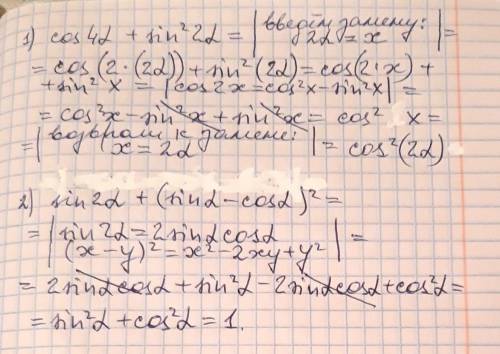 1) cos4α + sin²2α = | введём замену: 2α = x | =
= cos(2·(2α)) + sin²(2α) = cos(2·x) +
+ sin²x = |cos2x = cos²x - sin²x| =
= cos²x - sin²x + sin²x = cos² x =
= | возврат к замене: x = 2α | = cos²(2α)
2) sin2α + (sinα - cosα)² =
= | sin2α = 2sinαcosα
(x - y)² = x² - 2xy + y² | =
= 2sinαcosα + sin²α - 2sinαcosα + cos²α =
= sin²α + cos²α = 1.